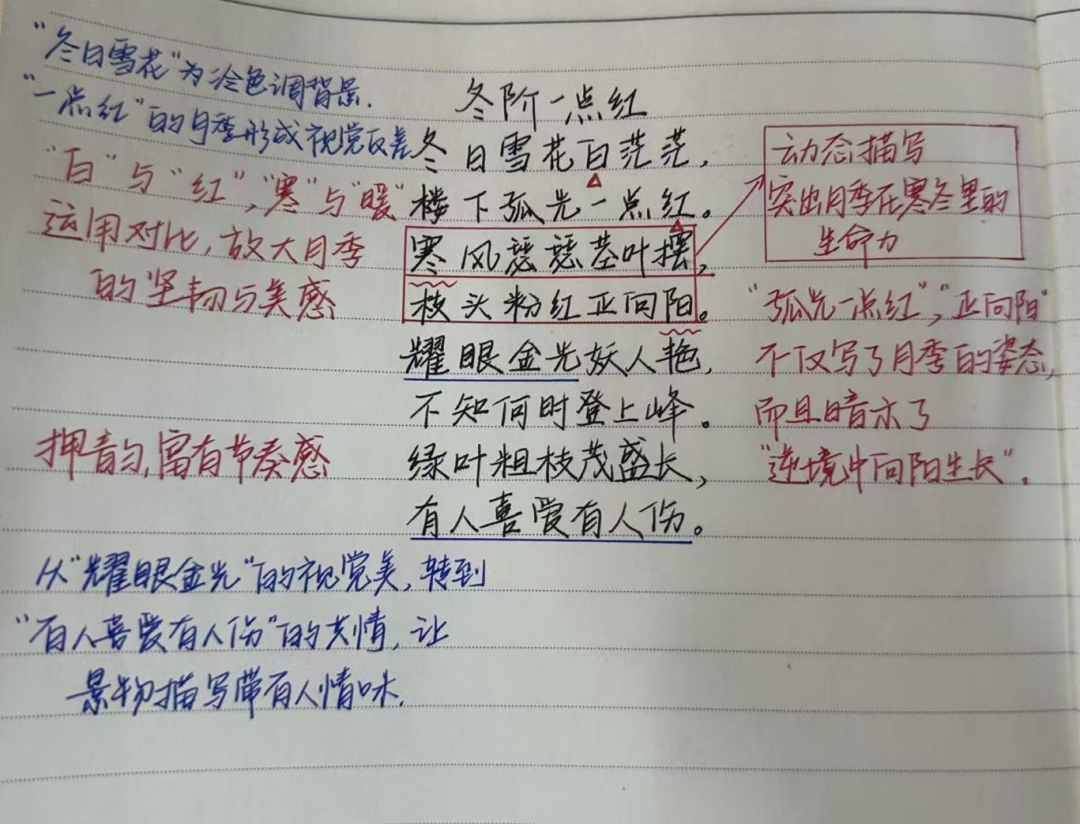 "冬日雪花"为冷色调背景.
"一点红"的月季形成视觉反差
"白"与"红","寒"与"暖"
运用对比,放大月季
的坚韧与美感
押韵,富有节奏感
冬阶一点红
冬日雪花白茫茫,
楼下孤光一点红。
寒风瑟瑟茎叶摆,
枝头粉红正向阳。
耀眼金光妖人艳,
不知何时登上峰。
绿叶粗枝茂盛长,
有人喜爱有人伤。
动态描写
突出月季在寒冬里的
生命力
"孤光一点红","正向阳"
不仅写了月季的姿态,
而且暗示了
"逆境中向阳生长".
从"耀眼金光"的视觉美,转到
"有人喜爱有人伤"的共情,让
景物描写带有人情味.